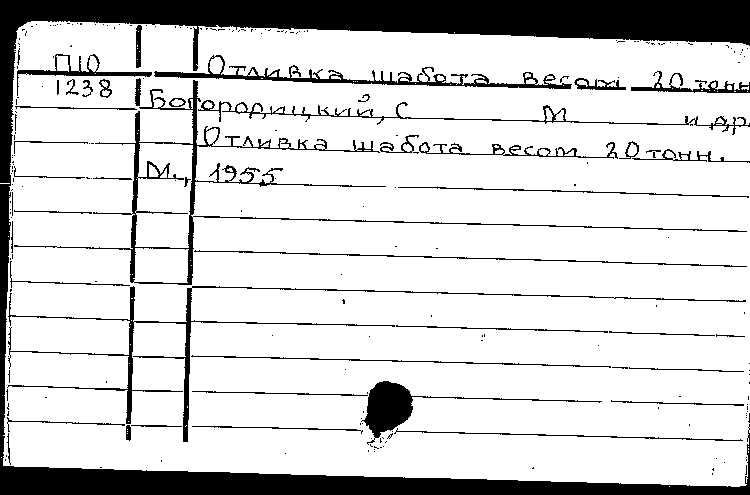 П10 Отливка шабота весом 20 тонн
1238 Богородицкий, С М и др.
Отливка шабота весом 20 тонн.
М., 1955